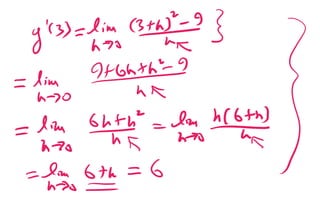 y'(3) = lim h→0 (3+h)² − 9 / h
= lim h→0 9+6h+h²−9 / h
= lim h→0 6h+h² / h = lim h→0 h(6+h) / h
= lim h→0 6+h = 6